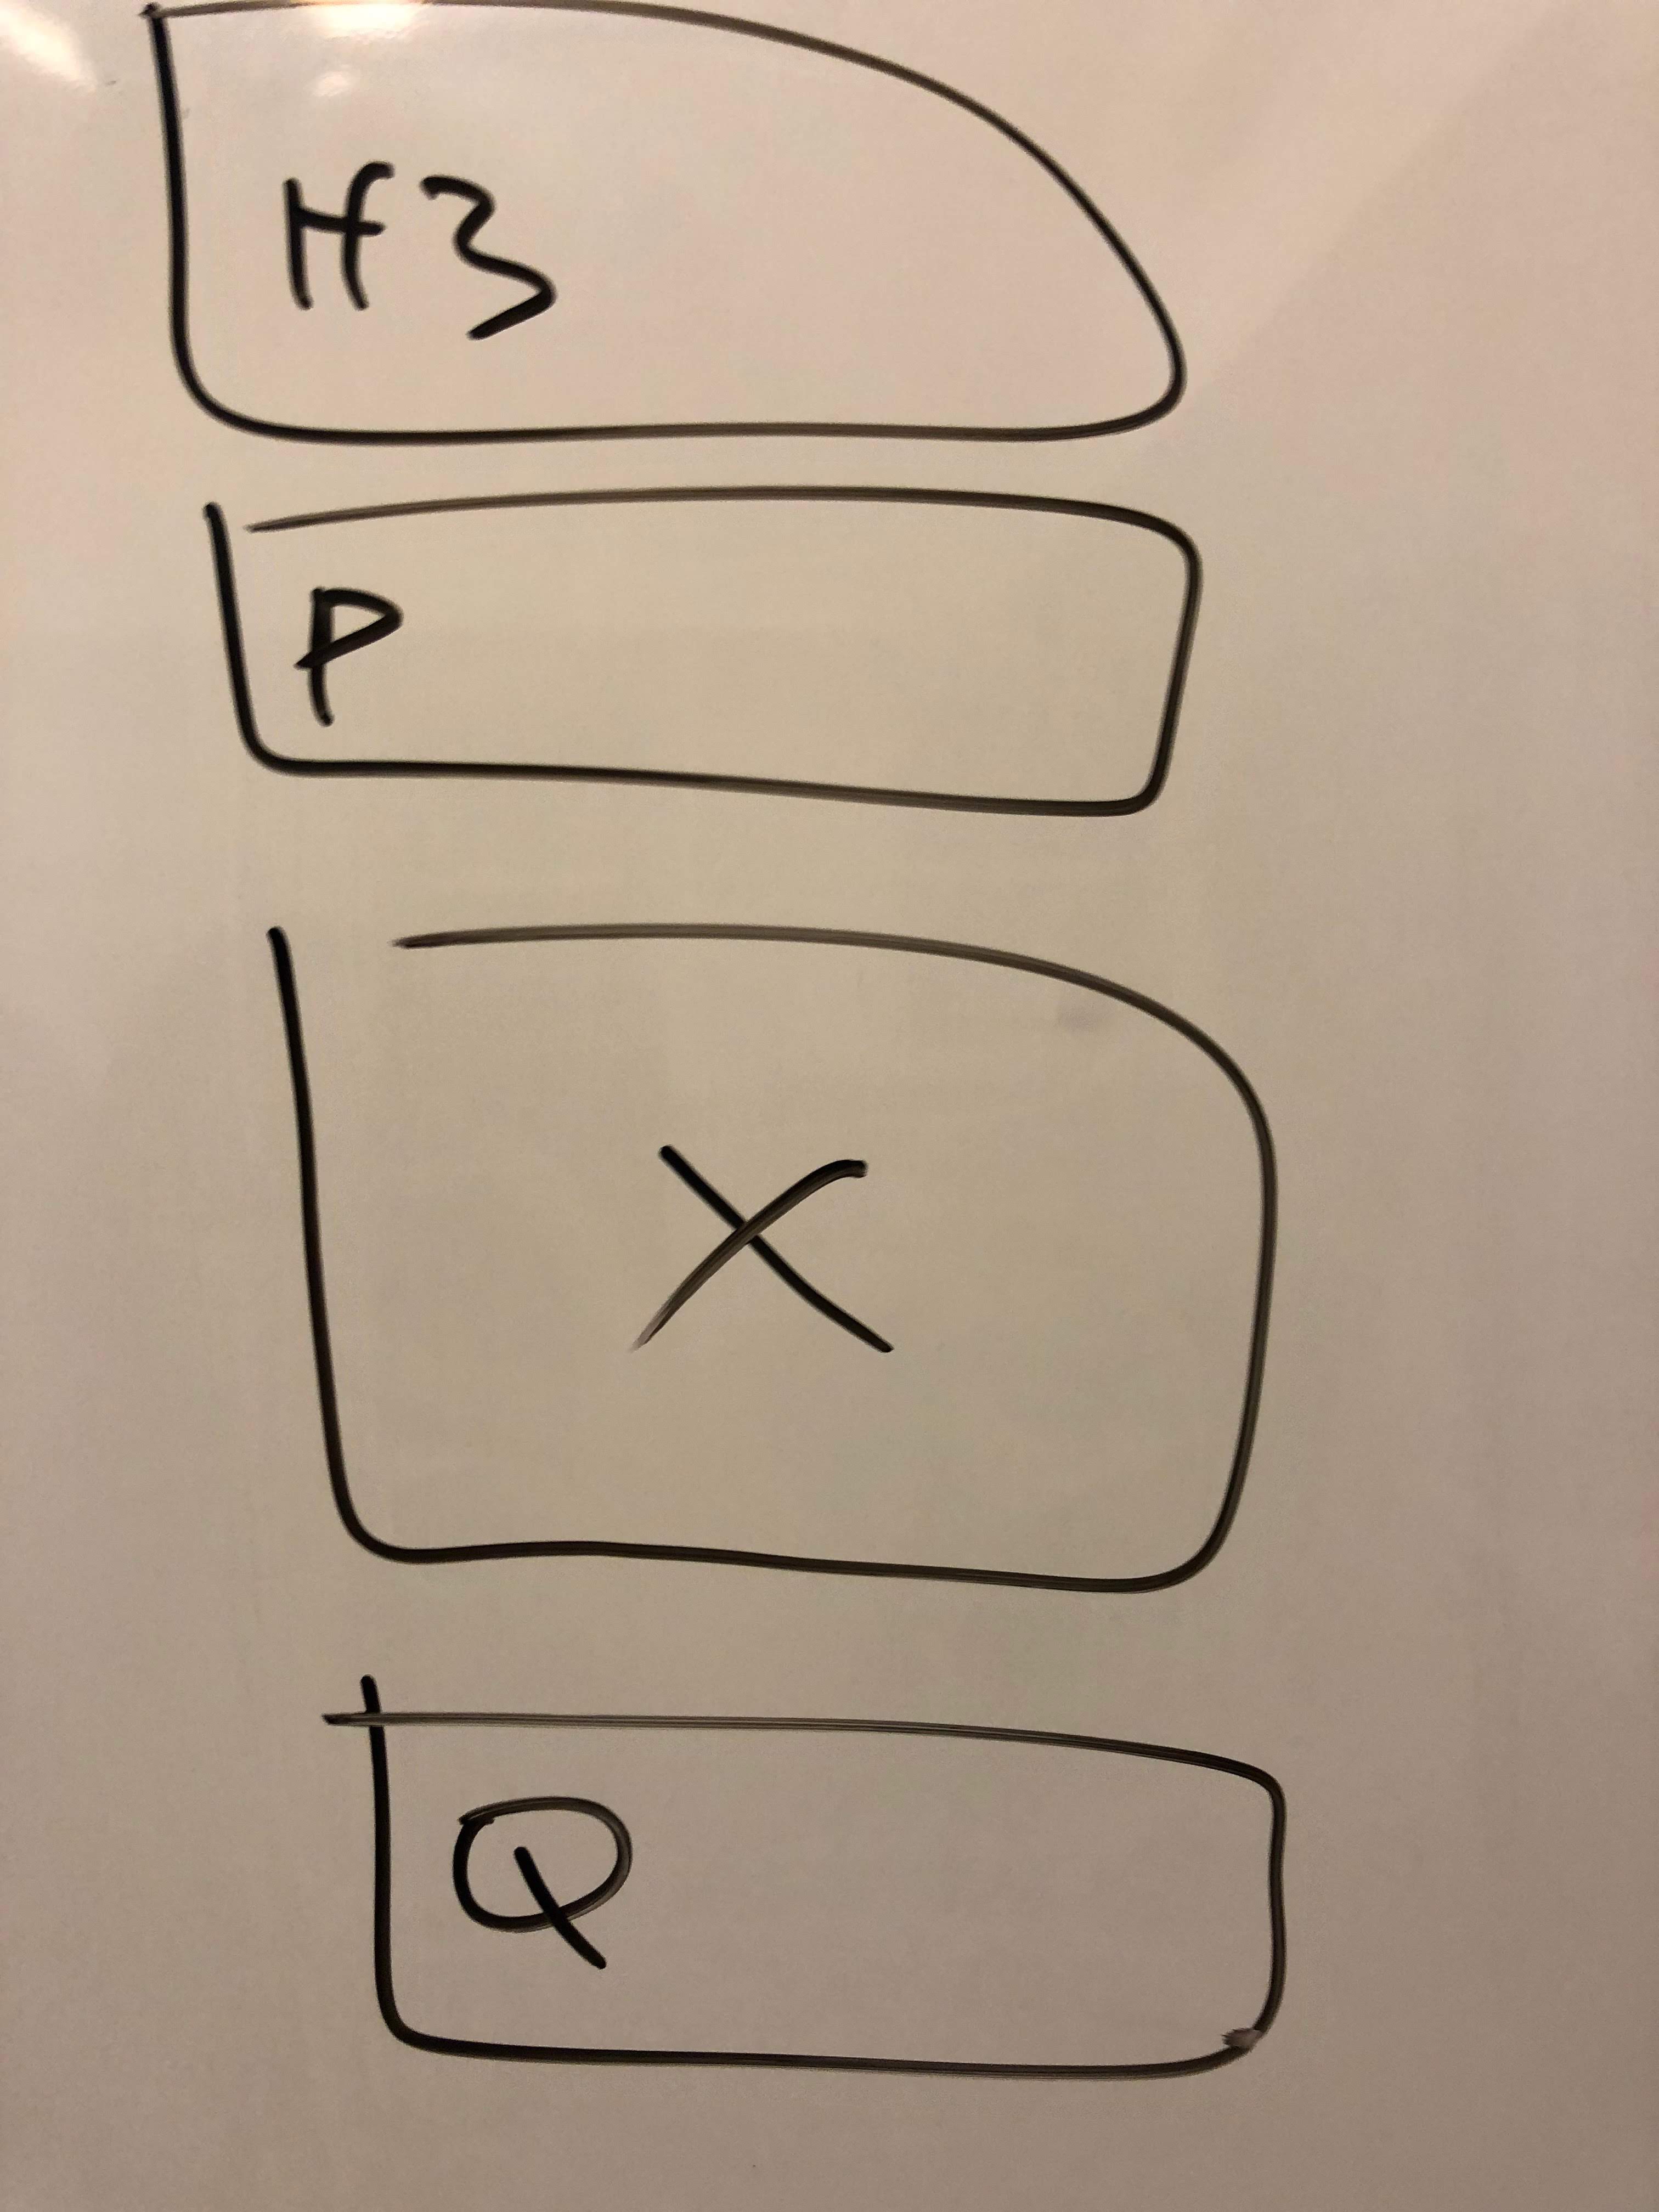 H3
P
X
Q